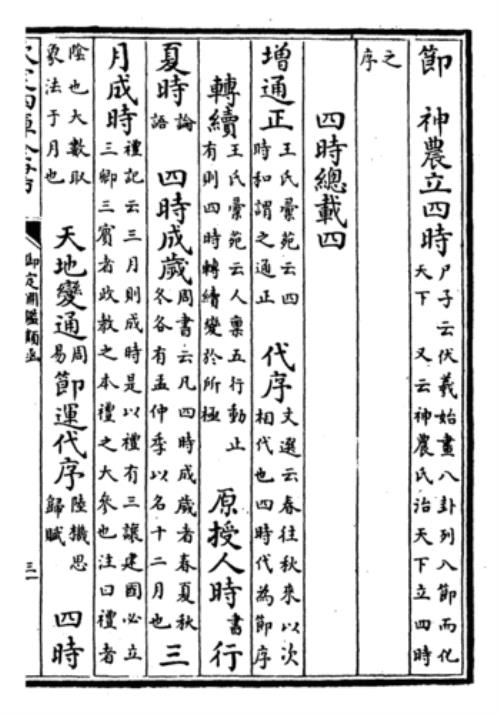 節 神農立四時 尸子云伏羲始畫八卦列八節而化天下 又云神農氏治天下立四時
之序
四時總載四
增通正 王氏彙苑云四時和謂之通正 代序 文選云春往秋來以次相代也四時代為節序
轉續 王氏彙苑云人稟五行動止有則四時轉續變於所極 原授人時 書 行
夏時 論語 四時成歲 周書云凡四時成歲者春夏秋冬各有孟仲季以名十二月也 三
月成時 禮記云三月則成時是以禮有三讓建國必立三卿三賓者政教之本禮之大參也注曰禮者
陰也大數取象法于月也 天地變通 周易 節運代序 陸機思歸賦 四時
御定淵鑑類函